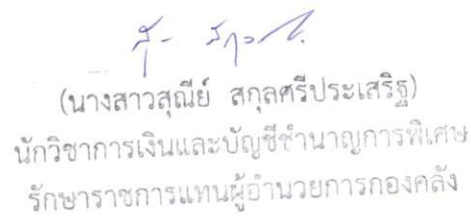 (นางสาวสุณีย์ สกุลศรีประเสริฐ)
นักวิชาการเงินและบัญชีชำนาญการพิเศษ
รักษาราชการแทนผู้อำนวยการกองคลัง